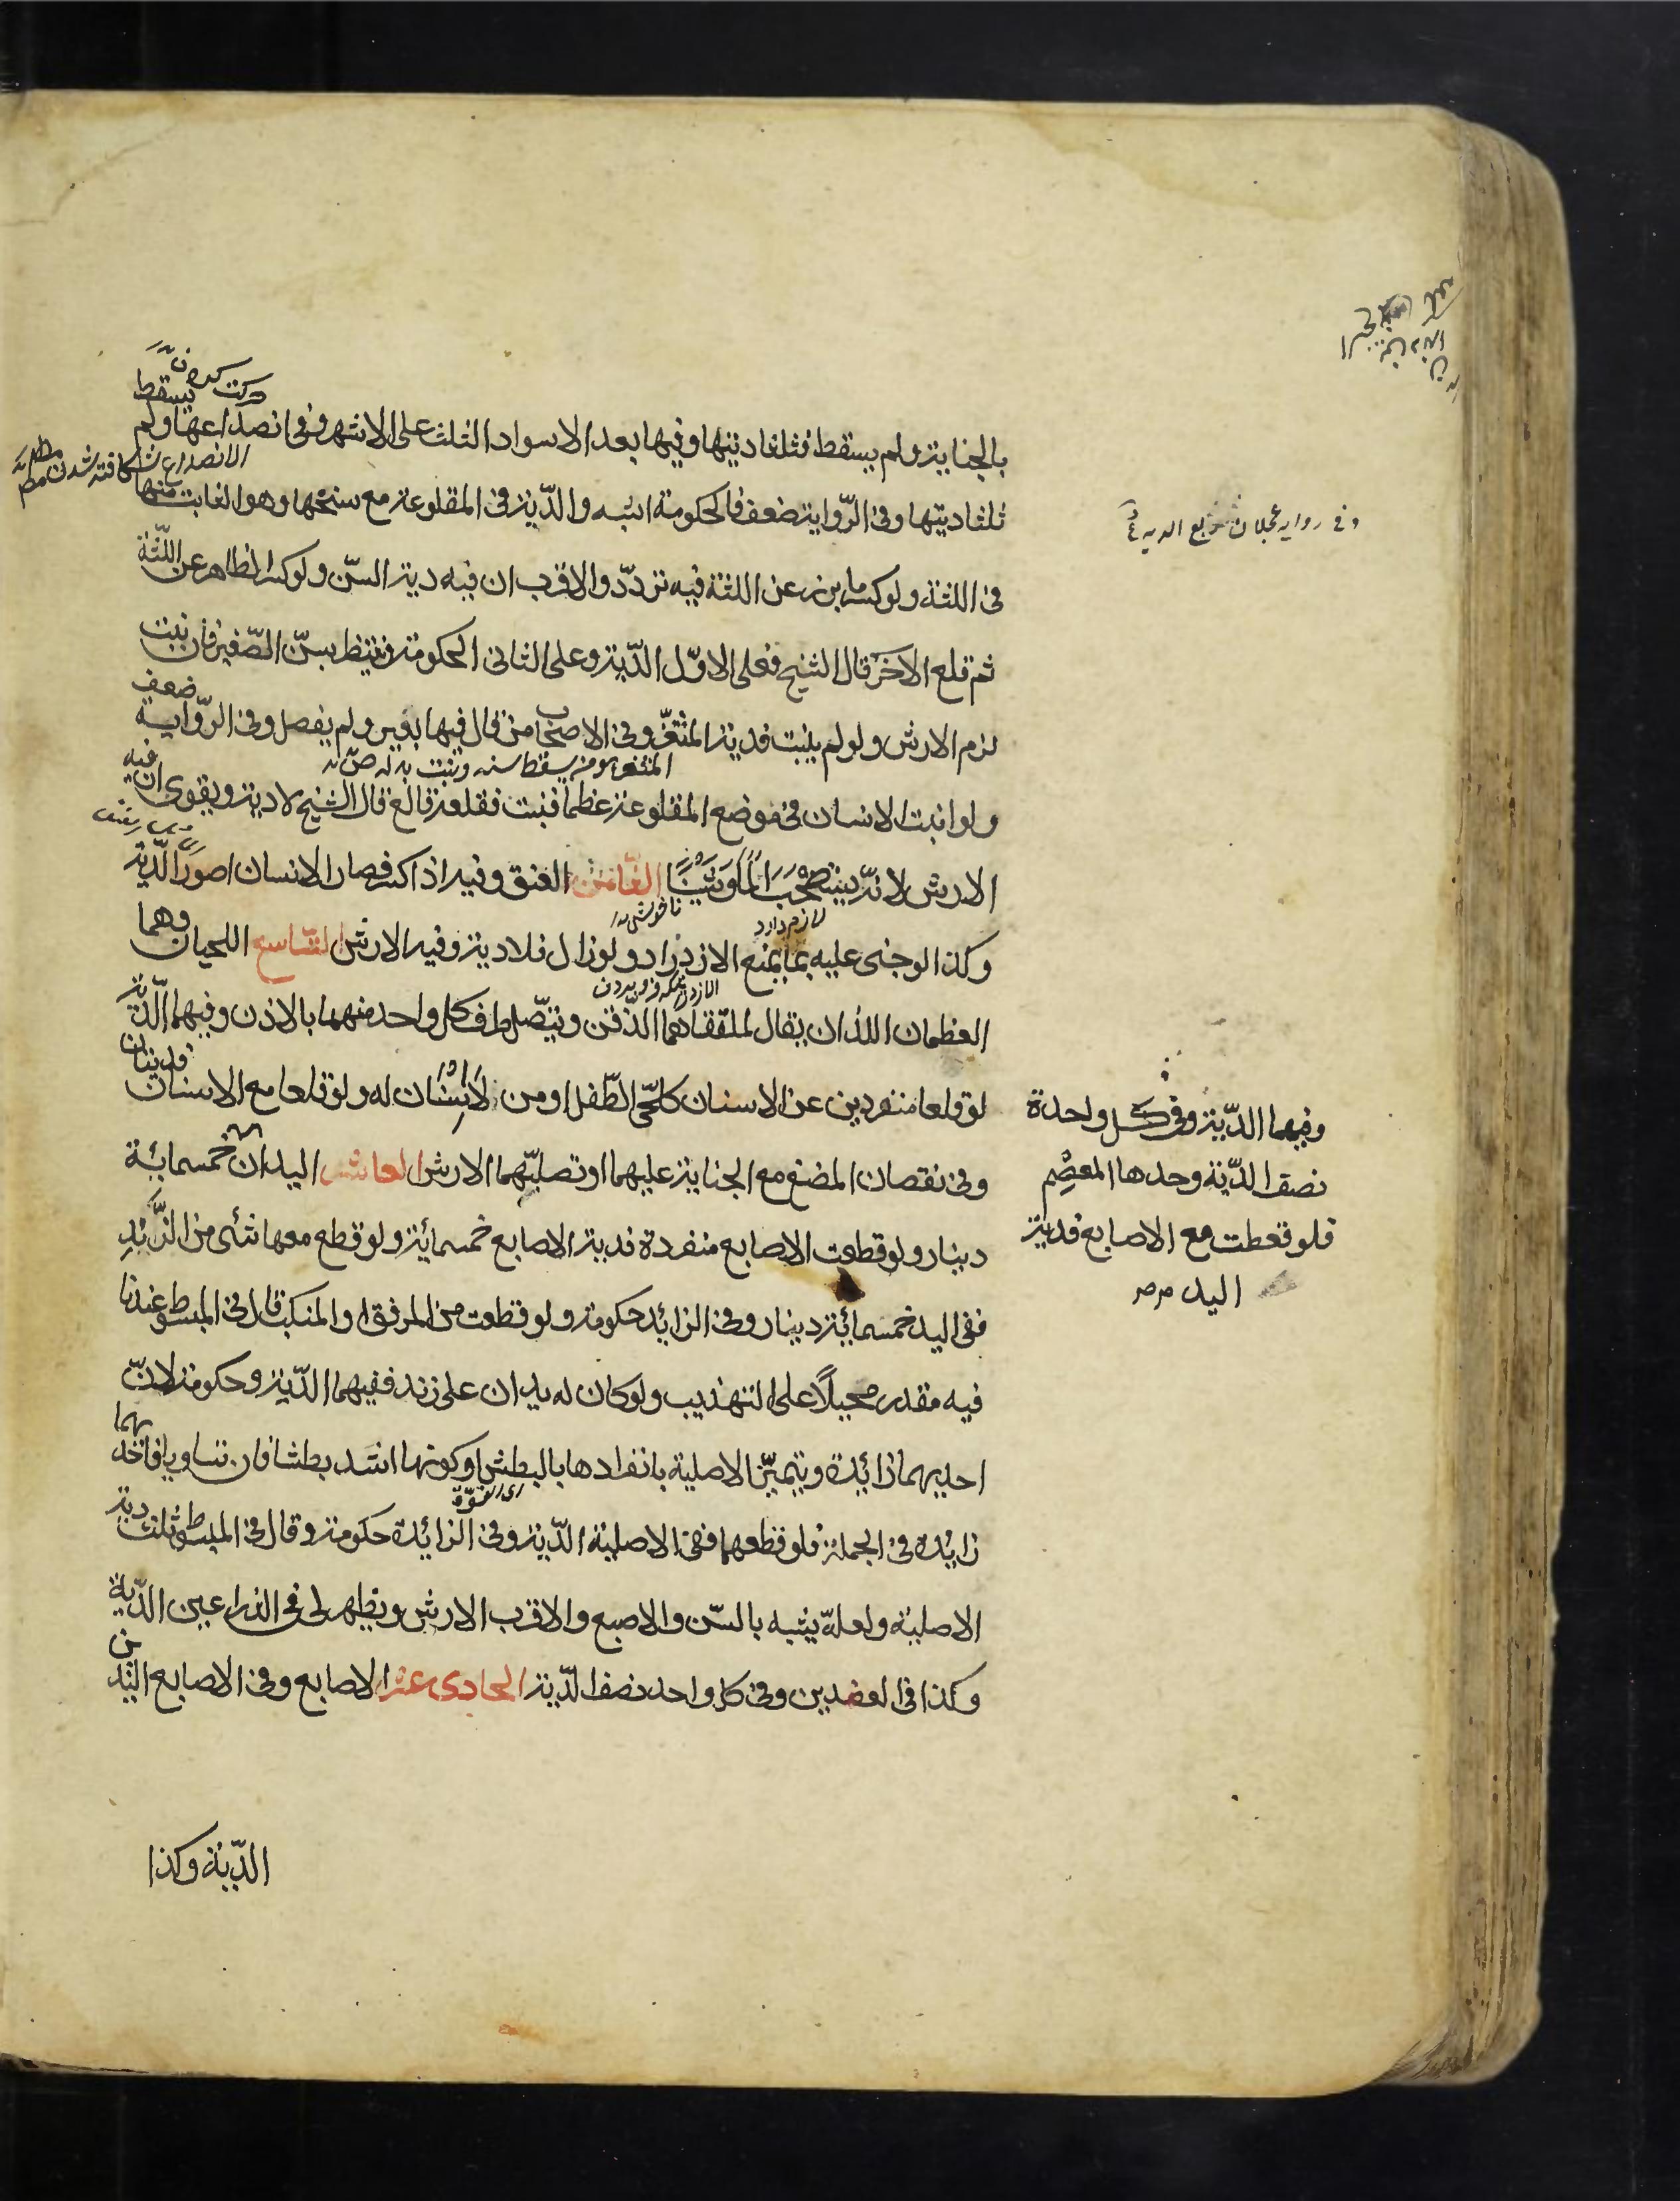 بالجناية ولم يسقط فثلثا ديتها وفيها بعد الاسوداد الثلث على الاشهر وفى انصداعها ولم يسقط
ثلثا ديتها وفى الرّواية ضعف فالحكومة اشبه والدّية فى المقلوعة مع سنخها وهو الثابت منها
فى اللثة ولو كسر ما برز عن اللثة فيه تردّد والاقرب ان فيه دية السّن ولو كسر الظاهر عن اللّثة
ثم قلع الآخر قال الشيخ فعلى الاوّل الدّية وعلى الثانى الحكومة وينتظر بسنّ الصّغير فان نبت
لزم الارش ولو لم ينبت فدية المثغر وفى الاصحاب من قال فيها ببعير ولم يفصل وفى الرّواية ضعف
المثغر هو من يسقط سنه وينبت بدله
ولو انبت الانسان فى موضع المقلوعة عظما فنبت فقلعه قالع قال الشيخ لا دية ويقوى ان فيه
الارش لانّه يستصحب الماً وشيناً الثامن العنق وفيه اذا كسر فصار الانسان اصور الدّية
ناخوشى
لازم دارد
وكذا لو جنى عليه بما يمنع الازدراد ولو زال فلا دية وفيه الارش التاسع اللحيان وهما
العظمان اللذان يقال لملتقاهما الذّقن ويتّصل طرف كل واحد منهما بالاذن وفيهما الدّية
لو قلعا منفردين عن الاسنان كلحى الطّفل او من لا اسنان له ولو قلعا مع الاسنان فديتان
وفى نقصان المضغ مع الجناية عليهما او تصلبهما الارش العاشر اليدان خمسمائة
دينار ولو قطعت الاصابع منفردة فدية الاصابع خمسمائة ولو قطع معها شئ من الزّند
ففى اليد خمسمائة دينار وفى الزائد حكومة ولو قطعت من المرفق او المنكب قال فى المبسوط عندنا
فيه مقدر محيلاً على التهذيب ولو كان له يدان على زند ففيهما الدّية وحكومة لانّ
احديهما زائدة ويتميّز الاصلية بانفرادها بالبطش او كونها اشد بطشا فان تساويا فاحديهما
اى القوّة
زايدة فى الجملة فلو قطعهما ففى الاصلية الدّية وفى الزائدة حكومة وقال فى المبسوط ثلث دية
الاصلية ولعلّه يشبه بالسّن والاصبع والاقرب الارش ويظهر لى فى الذراعين الدّية
وكذا فى العضدين وفى كل واحد نصف الدّية الحادى عشر الاصابع وفى الاصابع اليدين
الدّية وكذا
الانصداع شكافته شدن
وفى رواية عجلان الدية
وفيهما الدّية وفى كل واحدة
نصف الدّية وحدها المعصم
فلو قعطت مع الاصابع فدية
اليد